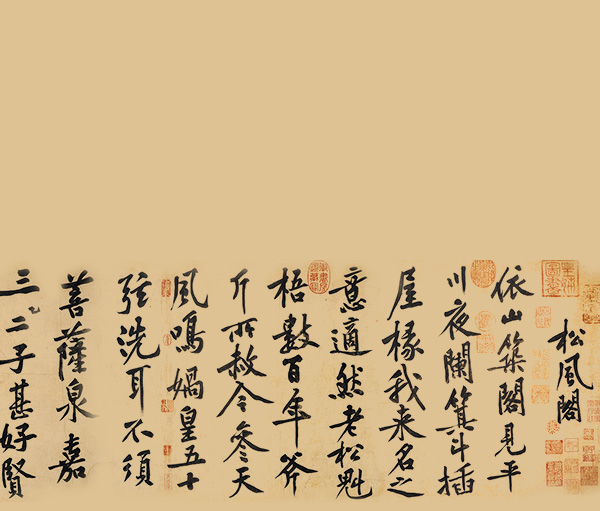 松風閣
依山築閣見平
川夜闌箕斗插
屋椽我来名之
意適然老松魁
梧數百年斧
斤所赦令參天
風鳴媧皇五十
弦洗耳不須
菩薩泉嘉
三二子甚好賢